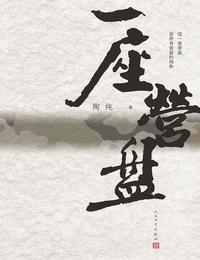 一座營盘
这一座营盘
是所有营盘的缩影
陶纯 著
人民文学出版社